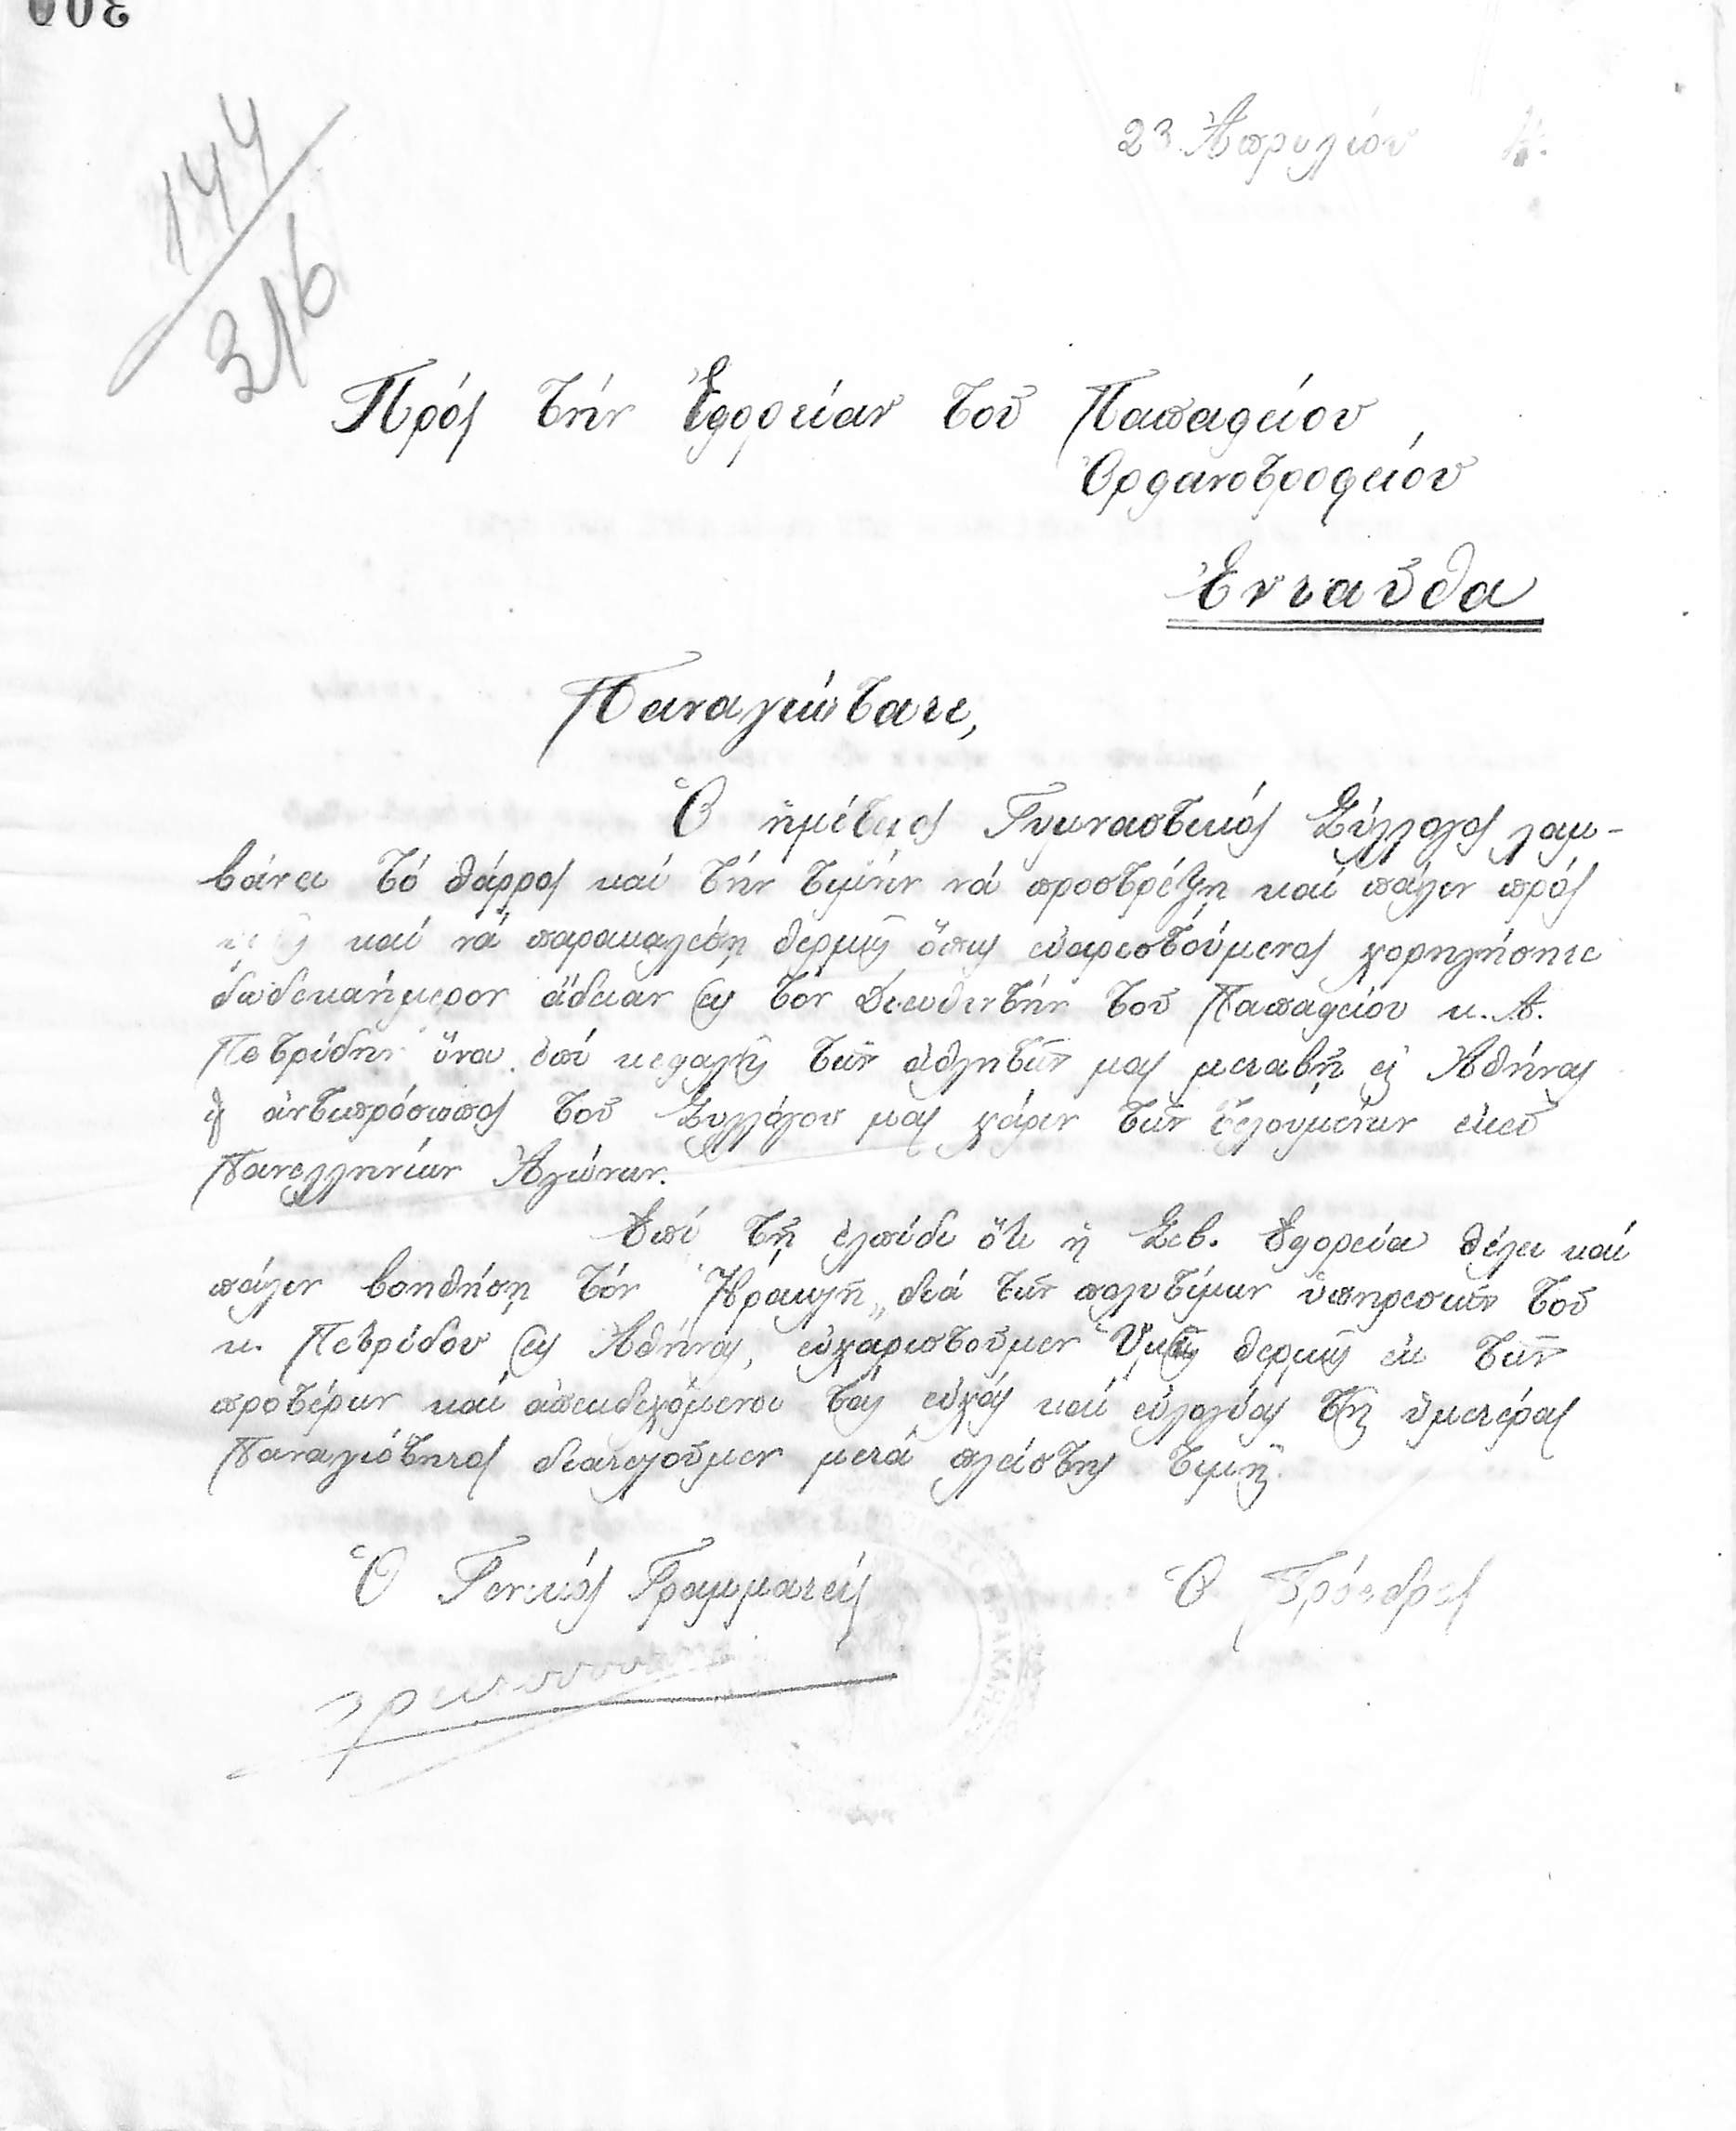 300
23 Ἀπριλίου
144
316
Πρός τήν Ἐφορείαν τοῦ Παπαφείου
Ὀρφανοτροφείου
Ἐνταῦθα
Παναγιώτατε,
Ὁ ἡμέτερος Γυμναστικός Σύλλογος λαμ-
βάνει τό θάρρος καί τήν τιμήν νά προστρέξῃ καί πάλιν πρός
καί νά παρακαλέσῃ θερμῶς ὅπως εὐαρεστούμενος χορηγήσητε
δωδεκαήμερον ἄδειαν εἰς τόν Διευθυντήν τοῦ Παπαφείου κ. Α.
Πετρίδην ἵνα ἐπί κεφαλῆς τῶν ἀθλητῶν μας μεταβῇ εἰς Ἀθήνας
ὡς ἀντιπρόσωπος τοῦ Συλλόγου μας χάριν τῶν τελουμένων ἐκεῖ
Πανελληνίων Ἀγώνων.
Ἐπί τῇ ἐλπίδι ὅτι ἡ Σεβ. Ἐφορεία θέλει καί
πάλιν βοηθήσῃ τόν "Ἡρακλῆ„ διά τῶν πολυτίμων ὑπηρεσιῶν τοῦ
κ. Πετρίδου εἰς Ἀθήνας, εὐχαριστοῦμεν Ὑμᾶς θερμῶς ἐκ τῶν
προτέρων καί ἀπεκδεχόμενοι τάς εὐχάς καί εὐλογίας τῆς ὑμετέρας
Παναγιότητος διατελοῦμεν μετά πλείστης τιμῆς.
Ὁ Γενικός Γραμματεύς Ὁ Πρόεδρος